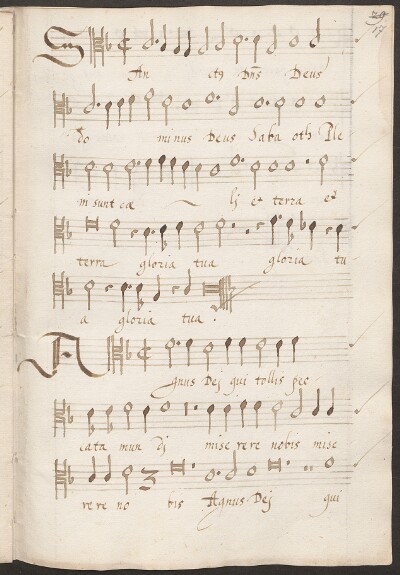 17
San ctus Dñs Deus
do minus Deus Saba oth Ple
ni sunt cæ li et terra et
terra gloria tua gloria tu
a gloria tua .
A gnus Dej qui tollis pec
cata mun dj mise rere nobis mise
rere no bis Agnus Dej qui